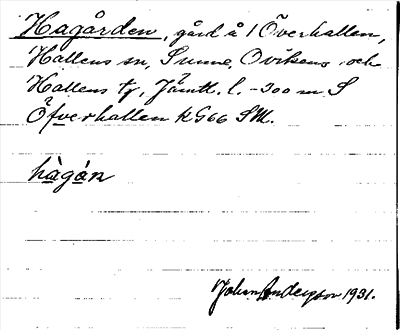 Hagården, gård å 1 Överhallen,
Hallens sn, Sunne, Ovikens och
Hallens tg, Jämtl. l. -300 m S
Öfverhallen kG66 SM.
hàgán
John Anderson 1931.